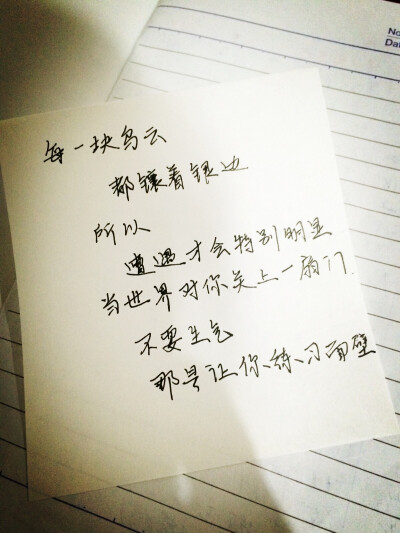 No
Da
每一块乌云
都镶着银边
所以
遭遇才会特别明显
当世界对你关上一扇门.
不要生气
那是让你练习面壁